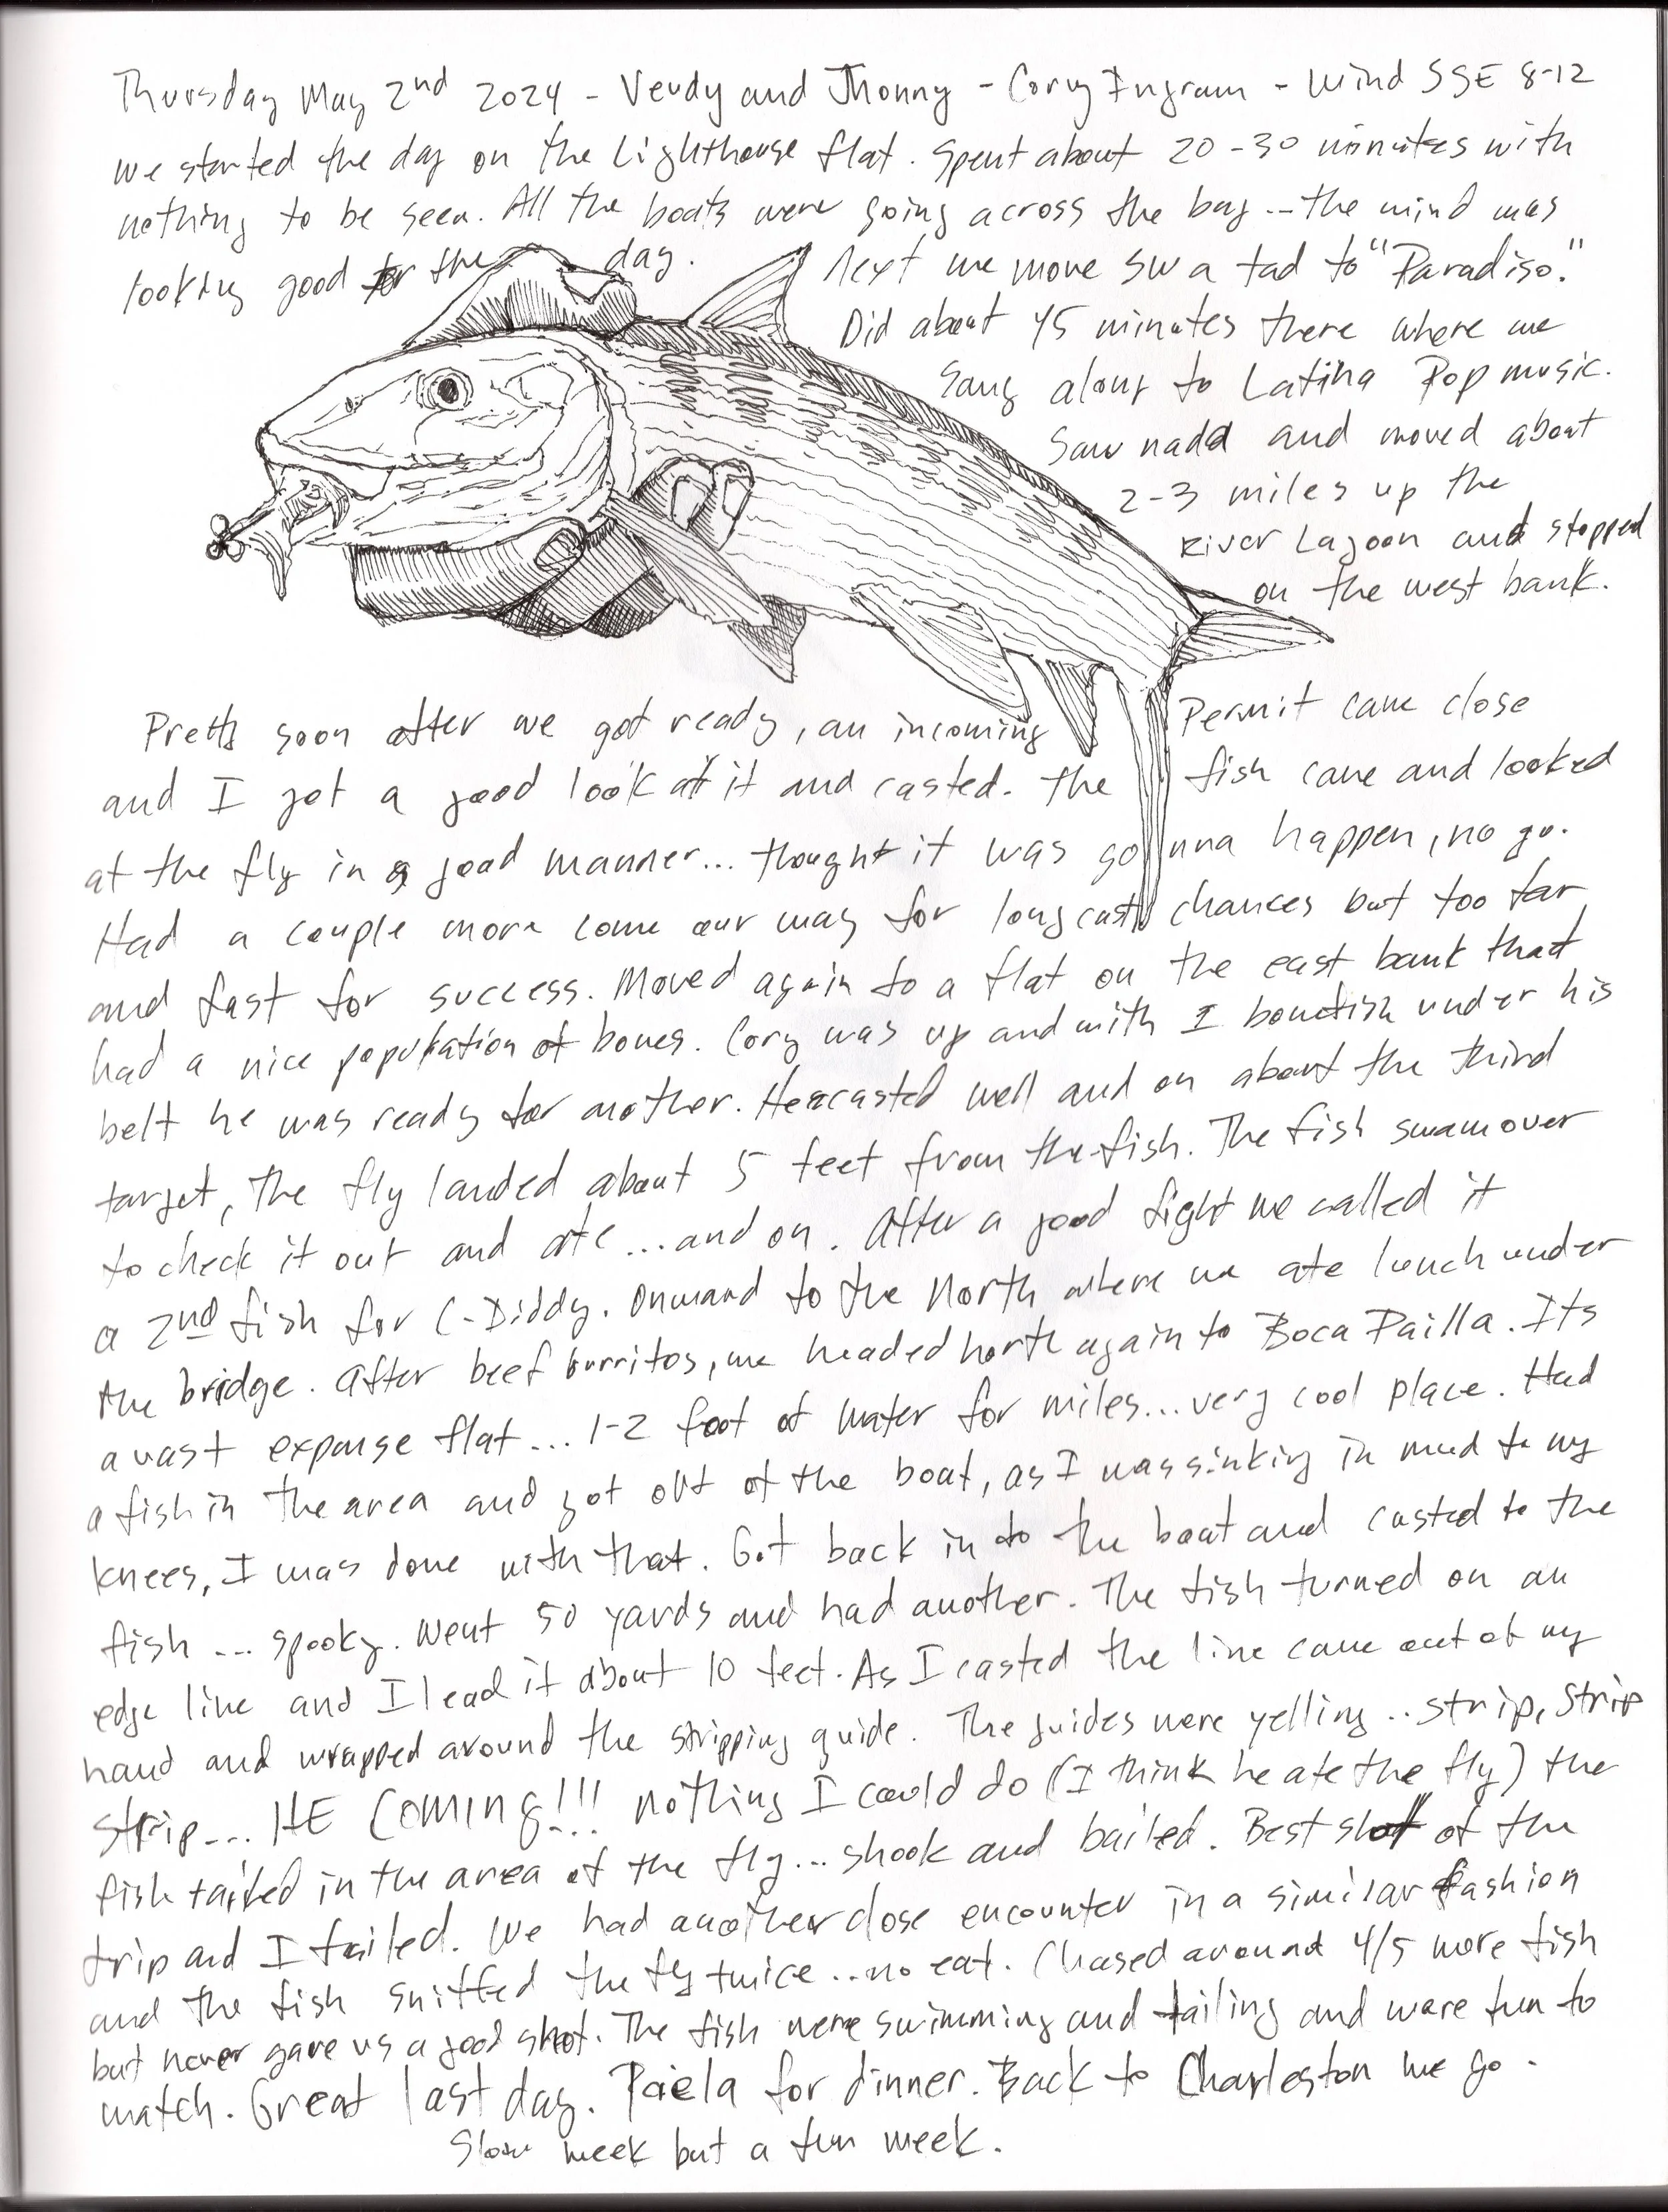 Thursday May 2nd 2024 - Verdy and Jhonny - Cory Ingram - Wind SSE 8-12
we started the day on the Lighthouse flat. Spent about 20-30 minutes with
nothing to be seen. All the boats were going across the bay...the wind was
looking good for the day. Next we move SW a tad to "Paradiso."
Did about 45 minutes there where we
sang along to Latina Pop music.
Saw nada and moved about
2-3 miles up the
River Lagoon and stopped
on the west bank.
Pretty soon after we got ready, an incoming Permit came close
and I got a good look at it and casted. The fish came and looked
at the fly in a good manner... thought it was gonna happen, no go.
Had a couple more come our way for long cast chances but too far
and fast for success. Moved again to a flat on the east bank that
had a nice population of bones. Cory was up and with 1 bonefish under his
belt he was ready for another. He casted well and on about the third
target, the fly landed about 5 feet from the fish. The fish swam over
to check it out and ate...and on. After a good fight we called it
a 2nd fish for C-Diddy. Onward to the North where we ate lunch under
the bridge. After beef burritos, we headed north again to Boca Pailla. Its
a vast expanse flat... 1-2 foot of water for miles...very cool place. Had
a fish in the area and got out of the boat, as I was sinking in mud to my
knees, I was done with that. Got back in to the boat and casted to the
fish ... spooky. Went 50 yards and had another. The fish turned on an
edge line and I lead it about 10 feet. As I casted the line came out of my
hand and wrapped around the stripping guide. The guides were yelling...strip, strip
strip... HE COMING!!! nothing I could do (I think he ate the fly) the
fish tailed in the area of the fly... shook and bailed. Best shot of the
trip and I failed. We had another close encounter in a similar fashion
and the fish sniffed the fly twice...no eat. Chased around 4/5 more fish
but never gave us a good shot. The fish were swimming and tailing and were fun to
watch. Great last day. Paiela for dinner. Back to Charleston we go.
Slow week but a fun week.